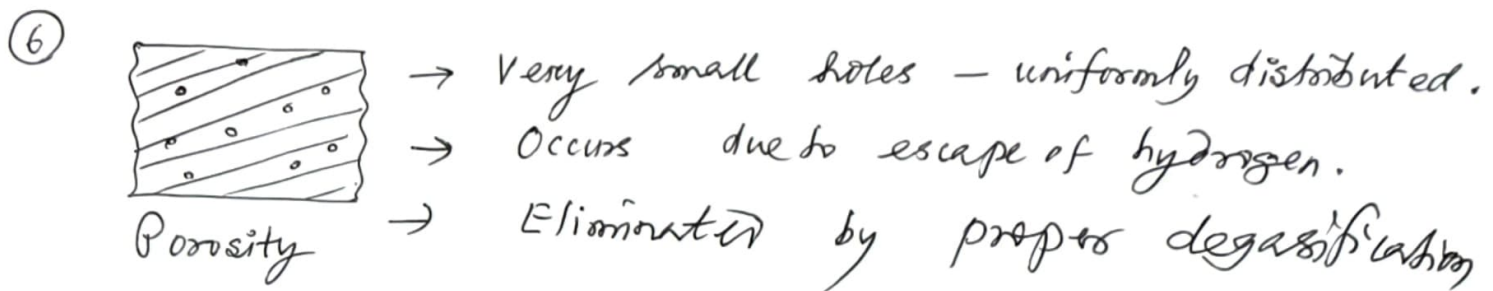 6
→ Very small holes – uniformly distributed.
→ Occurs due to escape of hydrogen.
Porosity
→ Eliminated by proper degasification